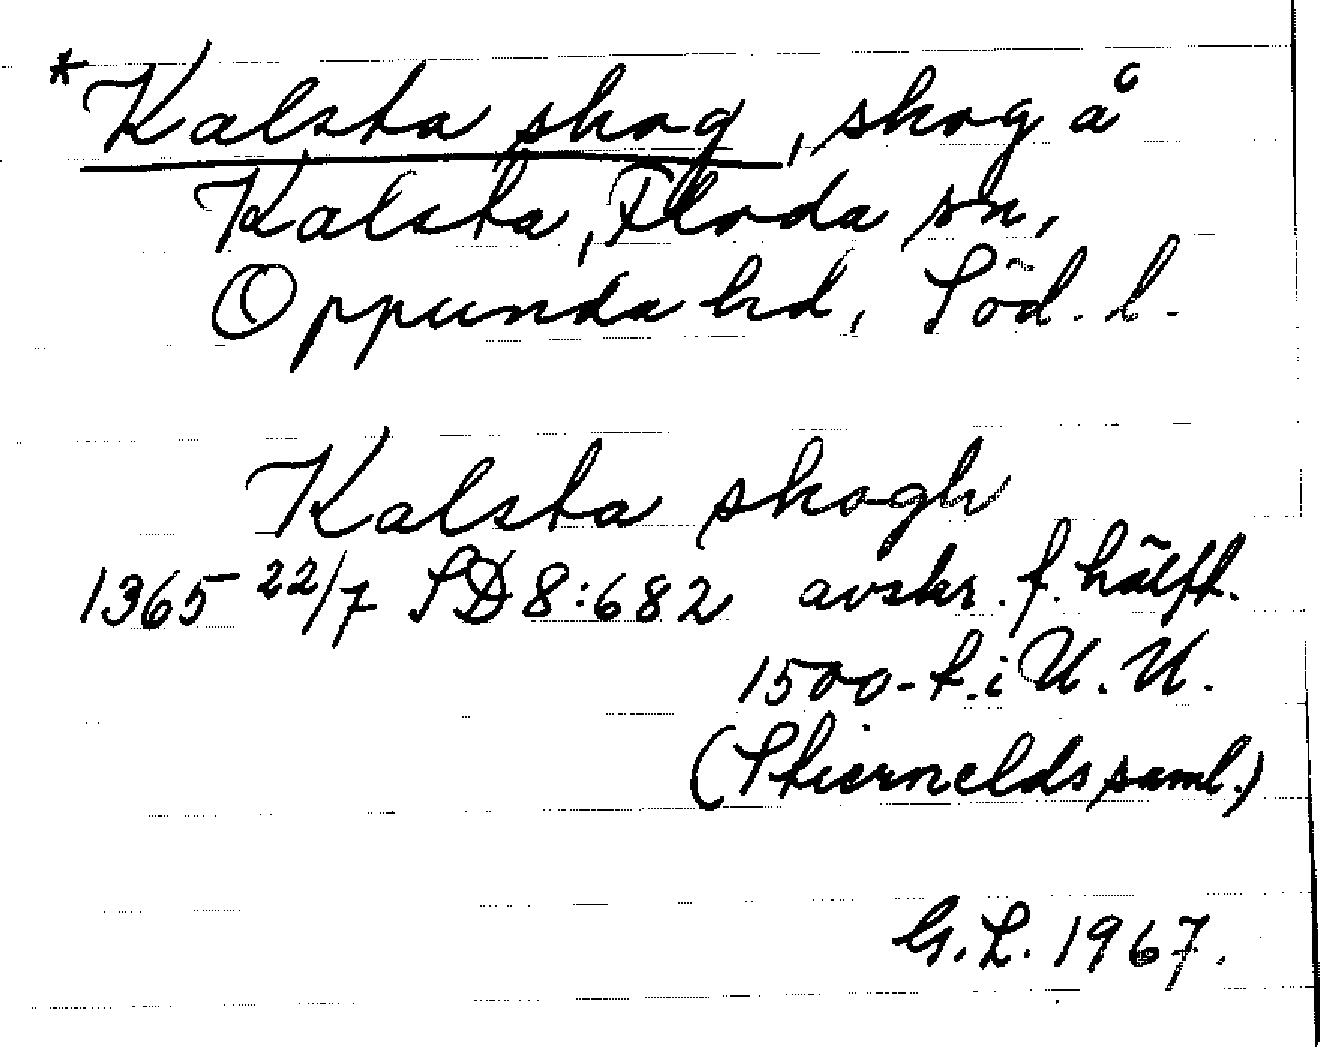 *Kalsta skog, skog å
Kalsta, Floda sn,
Oppunda hd, Söd. l.
Kalsta skogh
1365 22/7 SD 8:682 avskr. f. hälft.
1500-t. i U. U.
(Stiernelds saml.)
G. L. 1967.